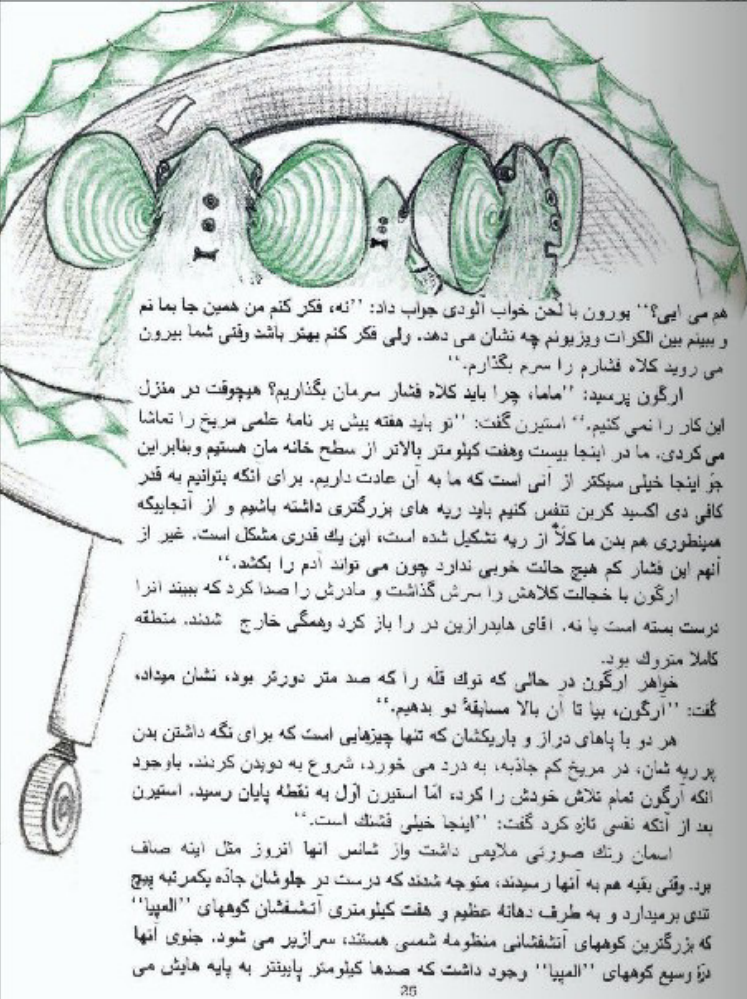 هم می ایی؟'' یورون با لحن خواب آلودی جواب داد: ''نه، فکر کنم من همین جا بما نم
و ببینم بین الکرات ویزیونم چه نشان می دهد. ولی فکر کنم بهتر باشد وقتی شما بیرون
می روید کلاه فشارم را سرم بگذارم.''
ارگون پرسید: ''ماما، چرا باید کلاه فشار سرمان بگذاریم؟ هیچوقت در منزل
این کار را نمی کنیم.'' استیرن گفت: ''تو باید هفته پیش بر نامۀ علمی مریخ را تماشا
می کردی. ما در اینجا بیست وهفت کیلومتر بالاتر از سطح خانه مان هستیم وبنابراین
جوّ اینجا خیلی سبکتر از آنی است که ما به آن عادت داریم. برای آنکه بتوانیم به قدر
کافی دی اکسید کربن تنفس کنیم باید ریه های بزرگتری داشته باشیم و از آنجاییکه
همینطوری هم بدن ما کلاً از ریه تشکیل شده است، این یك قدری مشکل است. غیر از
آنهم این فشار کم هیچ حالت خوبی ندارد چون می تواند آدم را بکشد.''
ارگون با خجالت کلاهش را سرش گذاشت و مادرش را صدا کرد که ببیند انرا
درست بسته است یا نه. اقای هایدرازین در را باز کرد وهمگی خارج شدند. منطقه
کاملا متروك بود.
خواهر ارگون در حالی که نوك قلّه را که صد متر دورتر بود، نشان میداد،
گفت: ''آرگون، بیا تا آن بالا مسابقۀ دو بدهیم.''
هر دو با پاهای دراز و باریکشان که تنها چیزهایی است که برای نگه داشتن بدن
پر ریه شان، در مریخ کم جاذبه، به درد می خورد، شروع به دویدن کردند. باوجود
انکه آرگون تمام تلاش خودش را کرد، امّا استیرن اوّل به نقطه پایان رسید. استیرن
بعد از آنکه نفسی تازه کرد گفت: ''اینجا خیلی قشنك است.''
اسمان رنك صورتی ملایمی داشت واز شانس انها انروز مثل اینه صاف
بود. وقتی بقیه هم به آنها رسیدند، متوجه شدند که درست در جلوشان جادّه یکمرتبه پیچ
تندی برمیدارد و به طرف دهانۀ عظیم و هفت کیلومتری آتشفشان کوههای ''المپیا''
که بزرگترین کوههای آتشفشانی منظومۀ شمسی هستند، سرازیر می شود. جنوی آنها
درّۀ وسیع کوههای ''المپیا'' وجود داشت که صدها کیلومتر پایینتر به پایه هایش می
25